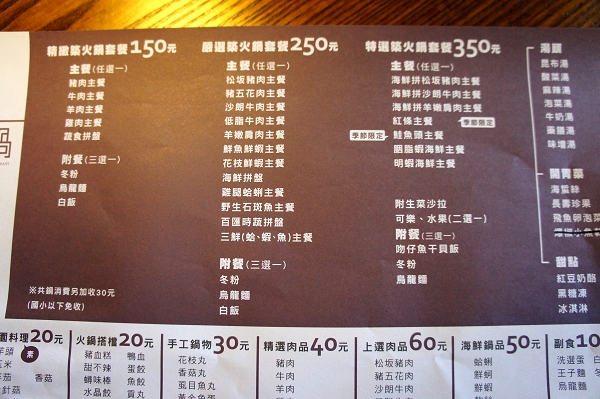 鍋
精緻築火鍋套餐150元
主餐(任選一)
豬肉主餐
牛肉主餐
羊肉主餐
雞肉主餐
蔬食拼盤
附餐(三選一)
冬粉
烏龍麵
白飯
※共鍋消費另加收30元
(國小以下免收)
嚴選築火鍋套餐250元
主餐(任選一)
松坂豬肉主餐
豬五花肉主餐
沙朗牛肉主餐
低脂牛肉主餐
羊嫩肩肉主餐
鮮魚鮮蝦主餐
花枝鮮蝦主餐
海鮮拼盤
雞腿蛤蜊主餐
野生石斑魚主餐
百匯時蔬拼盤
三鮮(蛤、蝦、魚)主餐
附餐(三選一)
冬粉
烏龍麵
白飯
特選築火鍋套餐350元
主餐(任選一)
海鮮拼松坂豬肉主餐
海鮮拼沙朗牛肉主餐
海鮮拼羊嫩肩肉主餐
紅條主餐 季節限定
季節限定 鮭魚頭主餐
胭脂蝦海鮮主餐
明蝦海鮮主餐
附生菜沙拉
可樂、水果(二選一)
附餐(三選一)
吻仔魚干貝飯
冬粉
烏龍麵
湯頭
昆布湯
酸菜湯
麻辣湯
泡菜湯
牛奶湯
藥膳湯
味增湯
開胃菜
海蜇絲
長壽珍果
飛魚卵泡菜
甜點
紅豆奶酪
黑糖凍
冰淇淋
園料理20元
芋頭 素
玉米
香菇
金針菇
火鍋搭檔20元
豬血糕 鴨血
甜不辣 蛋餃
蟳味棒 魚餃
水晶餃 貢丸
手工鍋物30元
花枝丸
香菇丸
虱目魚丸
黃金魚蛋
精選肉品40元
豬肉
牛肉
羊肉
上選肉品60元
松坂豬肉
豬五花肉
海鮮鍋品50元
蛤蜊
鮮蚵
鮮蝦
副食10
洗選蛋
王子麵
烏龍麵